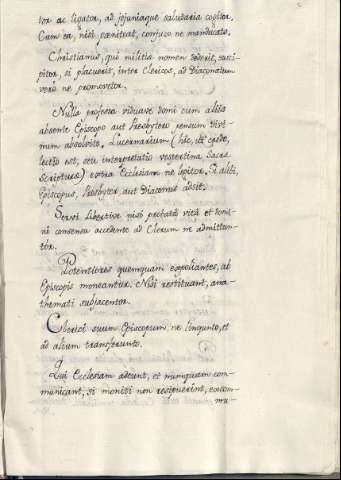 tor ac ligator, ad jejuniaque salutaria cogitor,
Cum ea, nisi pœniteat, conjuge ne manducato.
Christianus, qui militia nomen dederit, susci-
pitor, si placuerit, inter Clericos, ad Diaconatum
vero ne promovetor.
Nulla professa viduave domi cum aliis
absente Episcopo aut Presbytero pensum divi-
num absolvito. Lucernarium (hæc, ut credo,
lectio est, seu interpretatio vespertina Sacræ
Scripturæ) extra Ecclesiam ne legitor. Si alibi,
Episcopus, Presbyter aut Diaconus adsit.
Servi Libertive nisi probata vita et Domi-
ni consensu accedente ad Clerum ne admitten-
tor.
Potentiores quemquam expoliantes, ab
Episcopis moneantur. Nisi restituant, ana-
themati subjacentor.
Clerici suum Episcopum ne linquunto, et
ad alium transferunto.
Qui Ecclesiam adeunt, et numquam com-
municant, si moniti non resipuerint, excom-
mu-